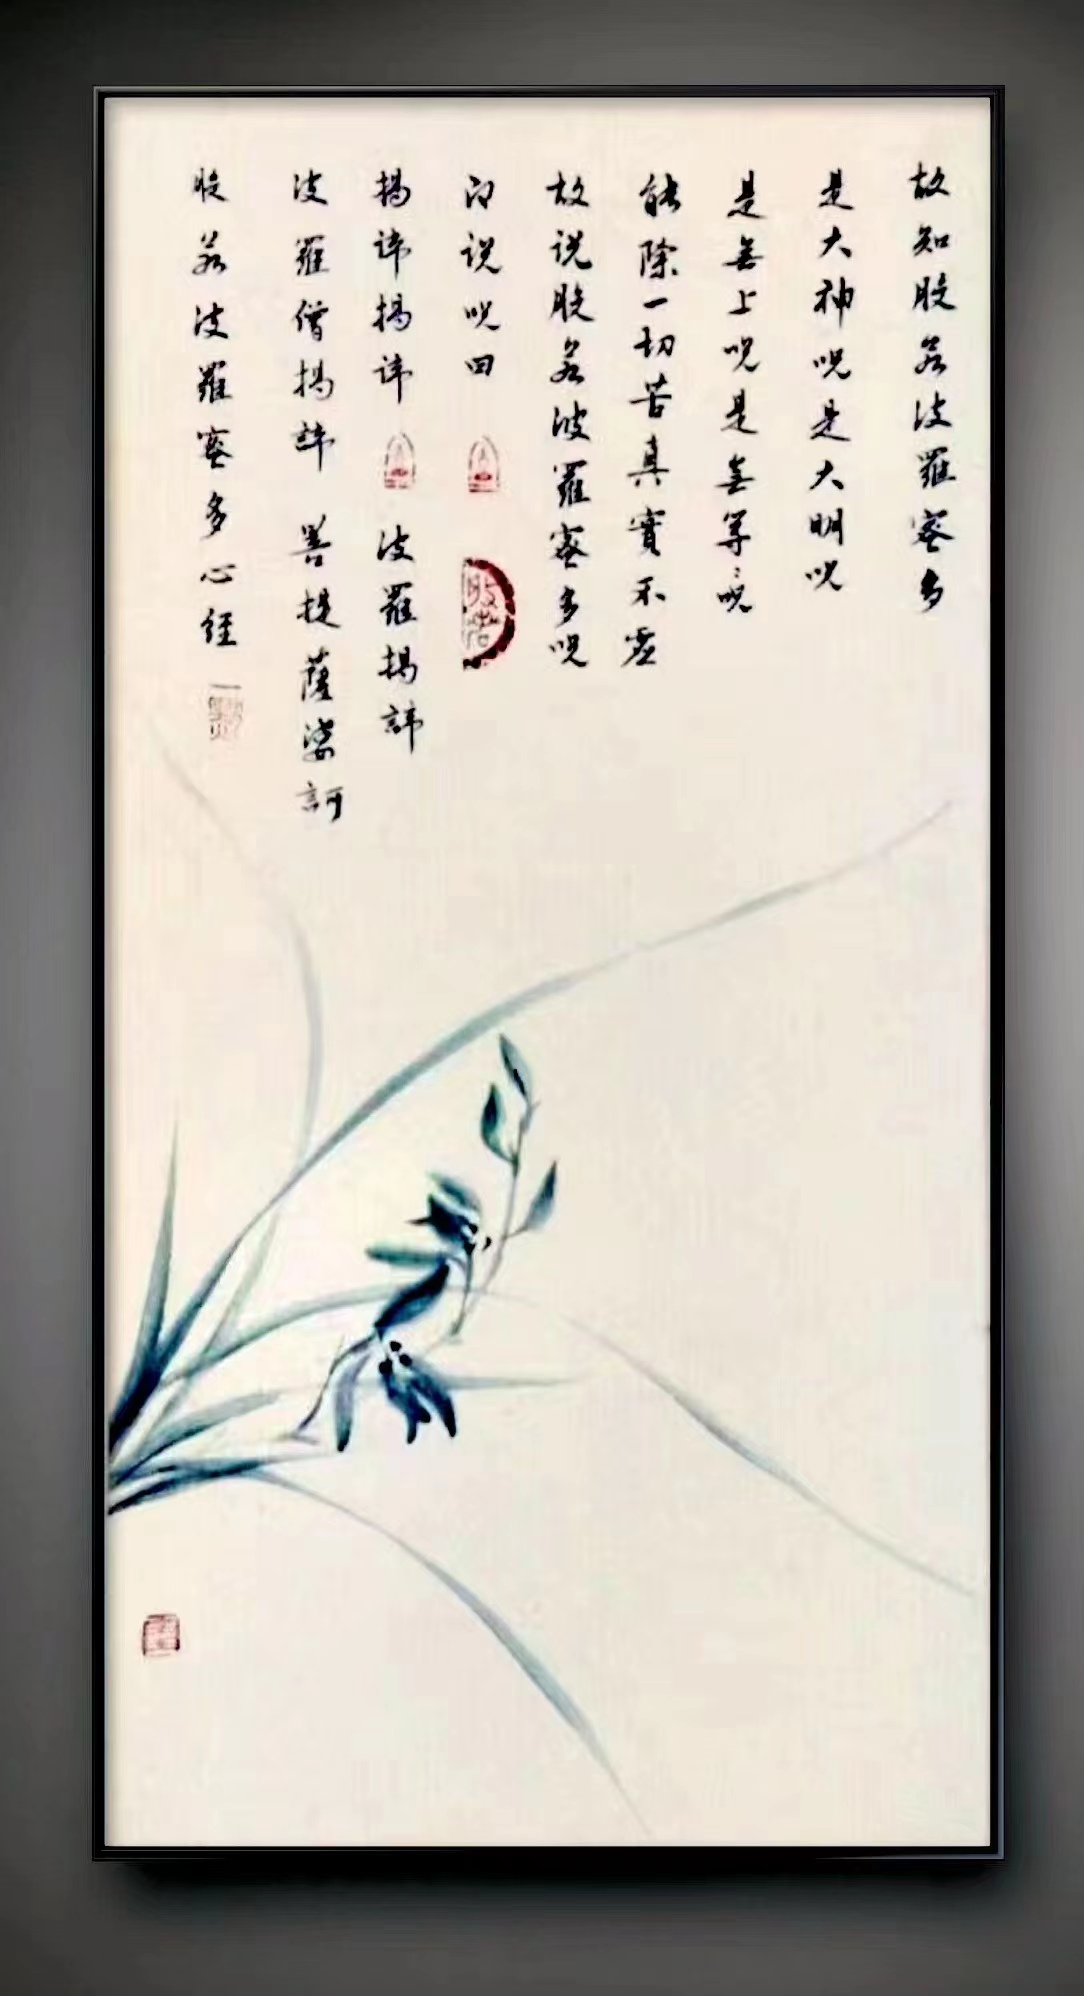 故知般若波羅蜜多
是大神呪是大明呪
是無上呪是無等〻呪
能除一切苦真實不虛
故说般若波羅蜜多呪
即说呪曰
般若
揭諦揭諦 波羅揭諦
波羅僧揭諦 菩提薩婆訶
般若波羅蜜多心經